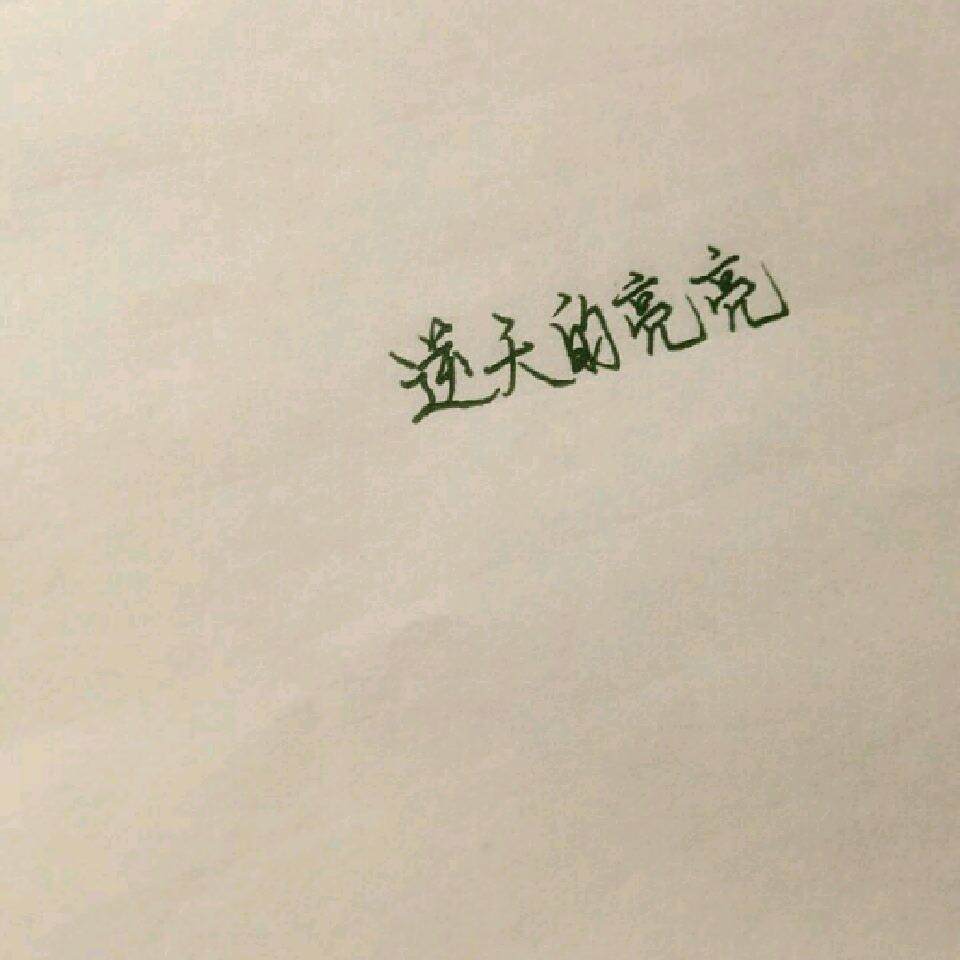 逆天的亮亮